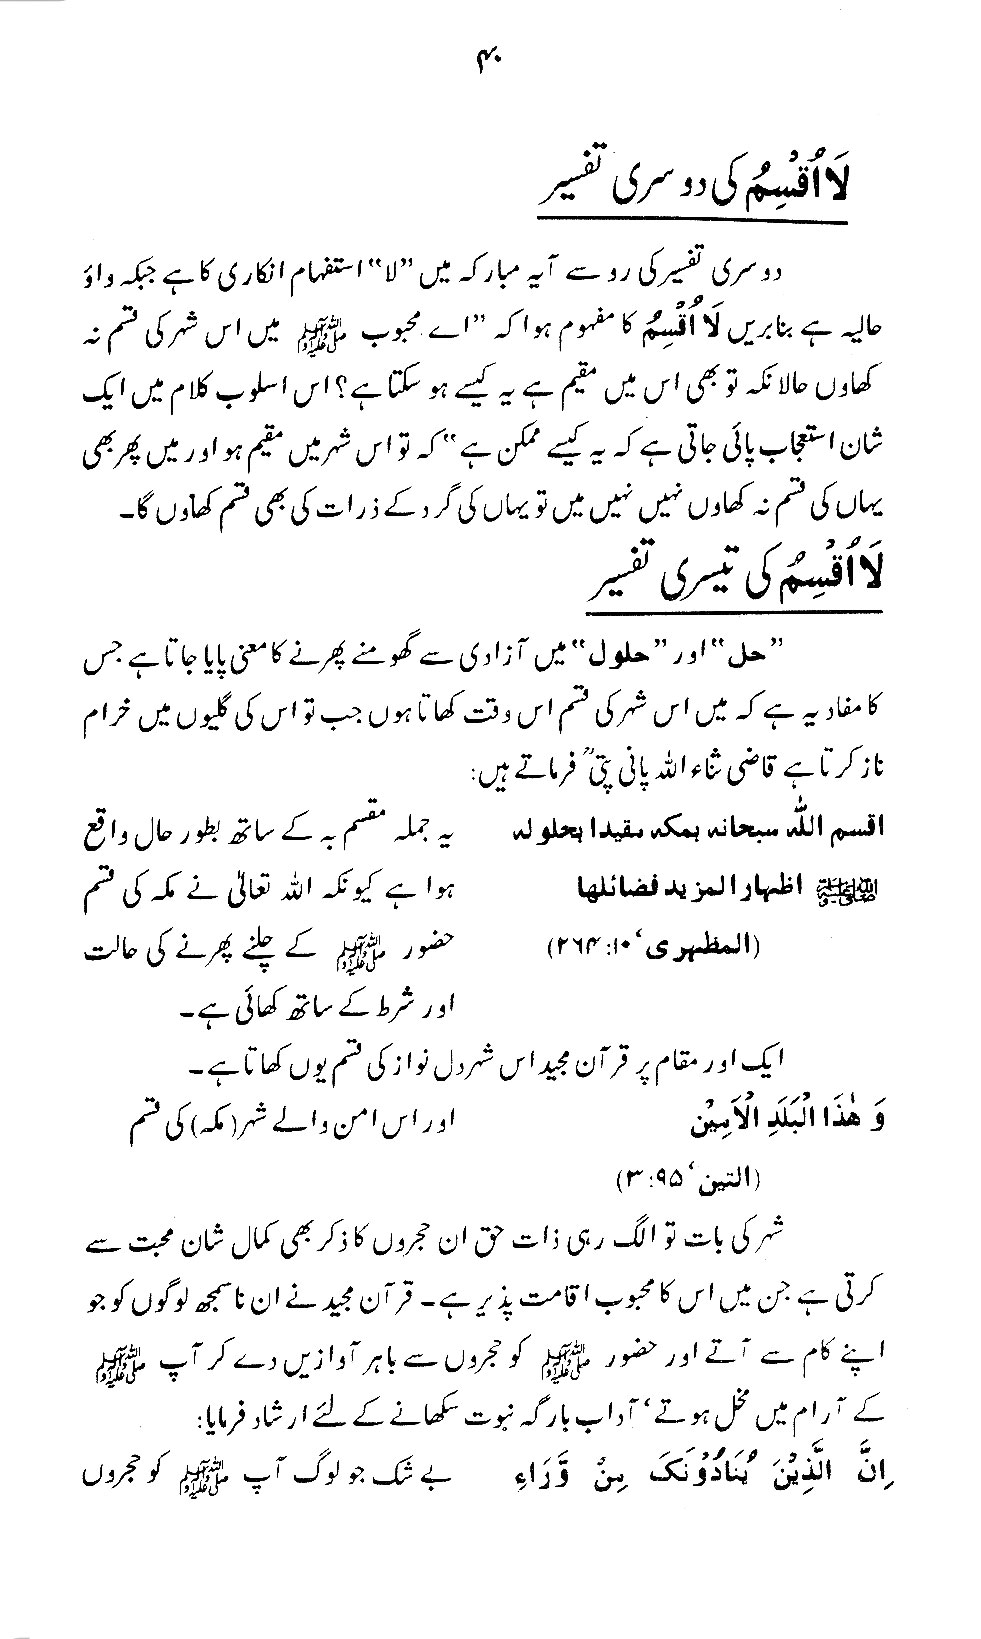 ۴۰
لَا اُقْسِمُ کی دوسری تفسیر
دوسری تفسیر کی رو سے آیہ مبارکہ میں ”لا“ استفہام انکاری کا ہے جبکہ واؤ
حالیہ ہے بنابریں لَا اُقْسِمُ کا مفہوم ہوا کہ ”اے محبوب ﷺ میں اس شہر کی قسم نہ
کھاوں حالانکہ تو بھی اس میں مقیم ہے یہ کیسے ہو سکتا ہے؟ اس اسلوب کلام میں ایک
شان استعجاب پائی جاتی ہے کہ یہ کیسے ممکن ہے“ کہ تو اس شہر میں مقیم ہو اور میں پھر بھی
یہاں کی قسم نہ کھاوں نہیں نہیں میں تو یہاں کی گرد کے ذرات کی بھی قسم کھاوں گا۔
لَا اُقْسِمُ کی تیسری تفسیر
”حل“ اور ”حلول“ میں آزادی سے گھومنے پھرنے کا معنی پایا جاتا ہے جس
کا مفاد یہ ہے کہ میں اس شہر کی قسم اس وقت کھاتا ہوں جب تو اس کی گلیوں میں خرام
ناز کرتا ہے قاضی ثناء اللہ پانی پتیؒ فرماتے ہیں:
اقسم اللّٰہ سبحانہ بمکہ مقیدا بحلولہ یہ جملہ مقسم بہ کے ساتھ بطور حال واقع
ﷺ اظہارا لمزید فضائلھا ہوا ہے کیونکہ اللہ تعالیٰ نے مکہ کی قسم
(المظھری‘ ۱۰:۲۶۴) حضور ﷺ کے چلنے پھرنے کی حالت
اور شرط کے ساتھ کھائی ہے۔
ایک اور مقام پر قرآن مجید اس شہر دل نواز کی قسم یوں کھاتا ہے۔
وَ ھٰذَا الْبَلَدِ الْاَمِیْن اور اس امن والے شہر (مکہ) کی قسم
(التین‘ ۹۵:۳)
شہر کی بات تو الگ رہی ذات حق ان حجروں کا ذکر بھی کمال شان محبت سے
کرتی ہے جن میں اس کا محبوب اقامت پذیر ہے۔ قرآن مجید نے ان ناسمجھ لوگوں کو جو
اپنے کام سے آتے اور حضور ﷺ کو حجروں سے باہر آوازیں دے کر آپ ﷺ
کے آرام میں مخل ہوتے‘ آداب بارگہ نبوت سکھانے کے لئے ارشاد فرمایا:
اِنَّ الَّذِیْنَ یُنَادُوْنَکَ مِنْ وَّرَاءِ بے شک جو لوگ آپ ﷺ کو حجروں